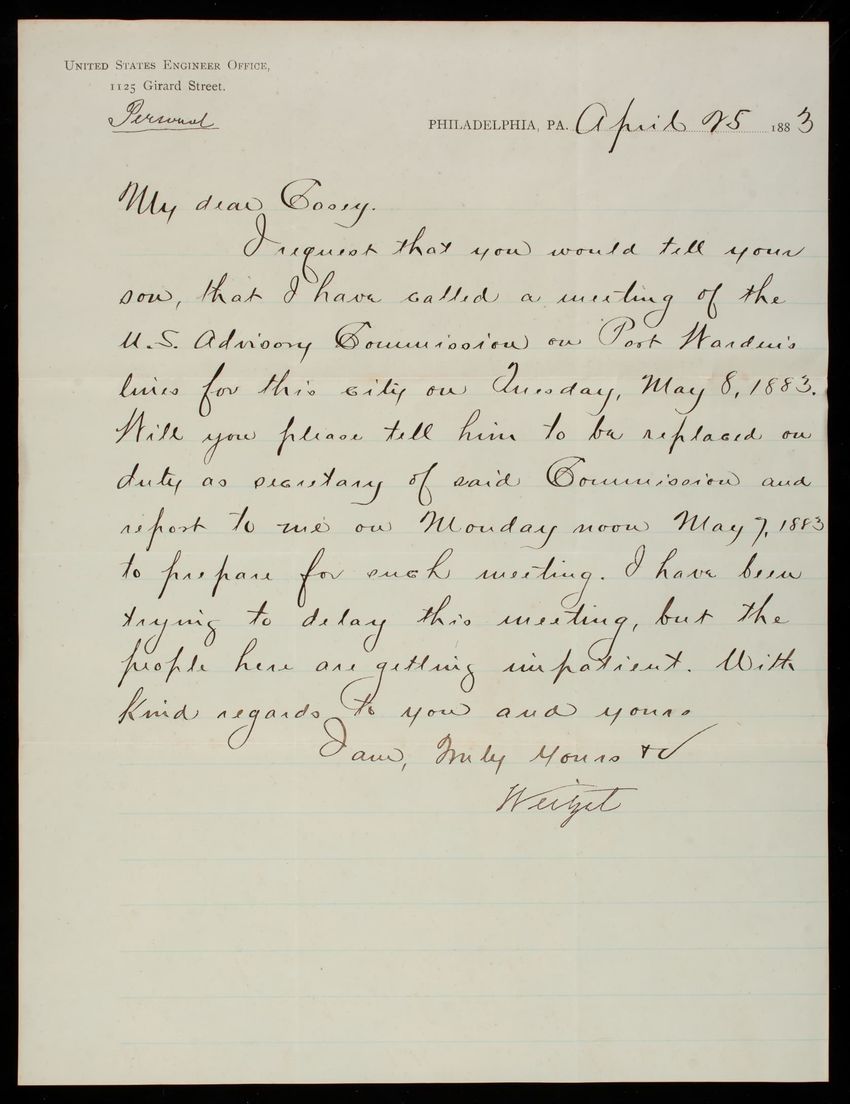 UNITED STATES ENGINEER OFFICE,
1125 Girard Street.
Personal
PHILADELPHIA, PA. April 25 1883
My dear Casey.
I request that you would tell your
son, that I have called a meeting of the
U.S. Advisory Commission on Port Warden's
lines for this city on Tuesday, May 8, 1883.
Will you please tell him to be replaced on
duty as secretary of said Commission and
report to me on Monday noon May 7, 1883
to prepare for such meeting. I have been
trying to delay this meeting, but the
people here are getting impatient. With
kind regards to you and yours
I am, Truly Yours &c
Weitzel